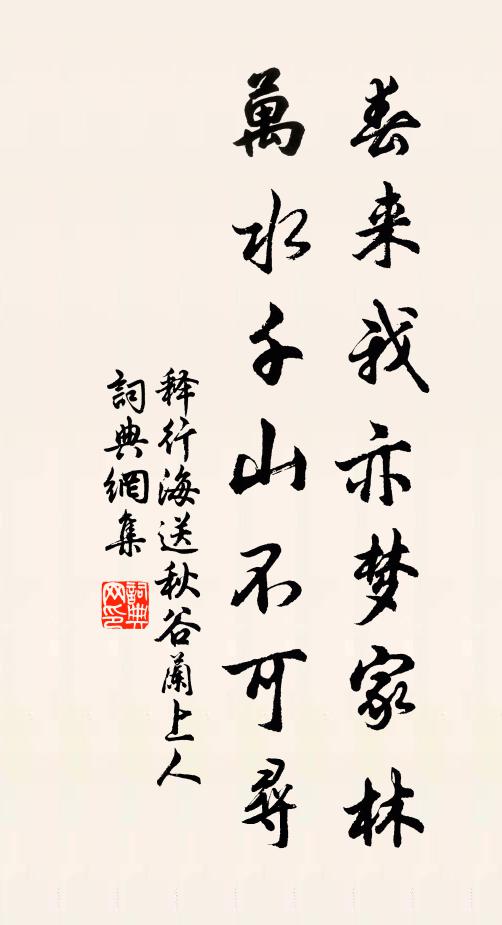 春来我亦梦家林
萬水千山不可尋
释行海送秋谷蘭上人
詞典網集
詞典
网印